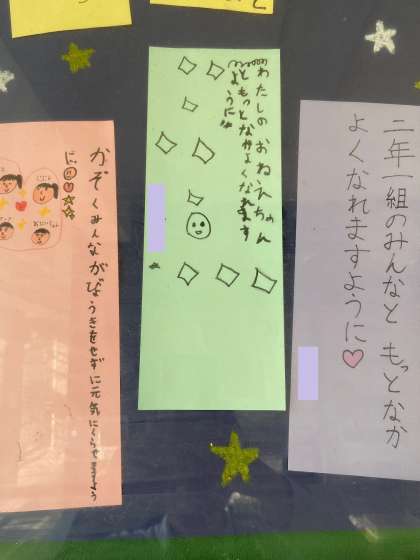 二年一組のみんなと もっとなか
よくなれますように♡
わたしのおねえちゃん
ともっとなかよくなれます
ように!!
かぞくみんながびょうきをせずに元気にくらせますよう
に